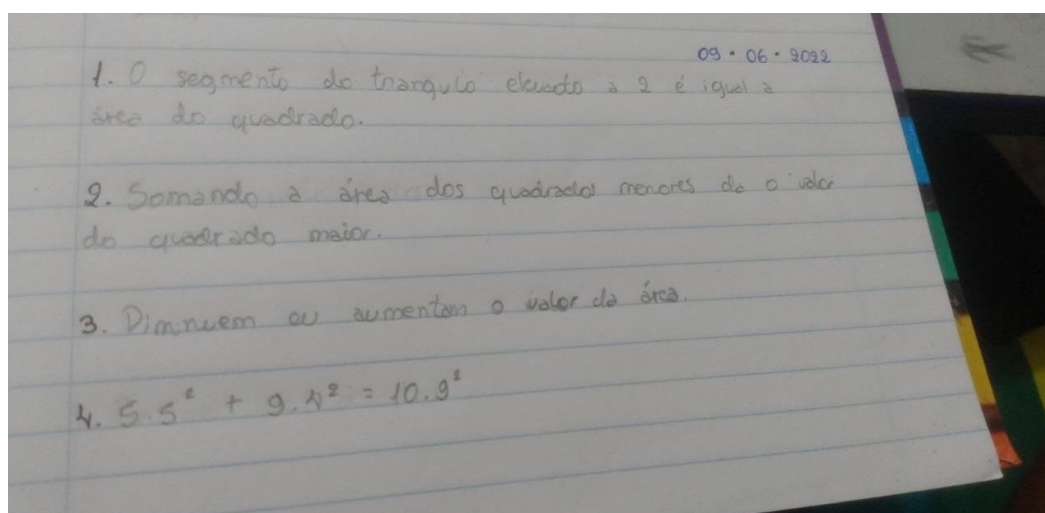 09 • 06 • 2022
1. O segmento do triangulo elevado a 2 é igual a
área do quadrado.
2. Somando a área dos quadrados menores da o valor
do quadrado maior.
3. Diminuem ou aumentam o valor da área.
4. 5.5² + 9.4² = 10.9²